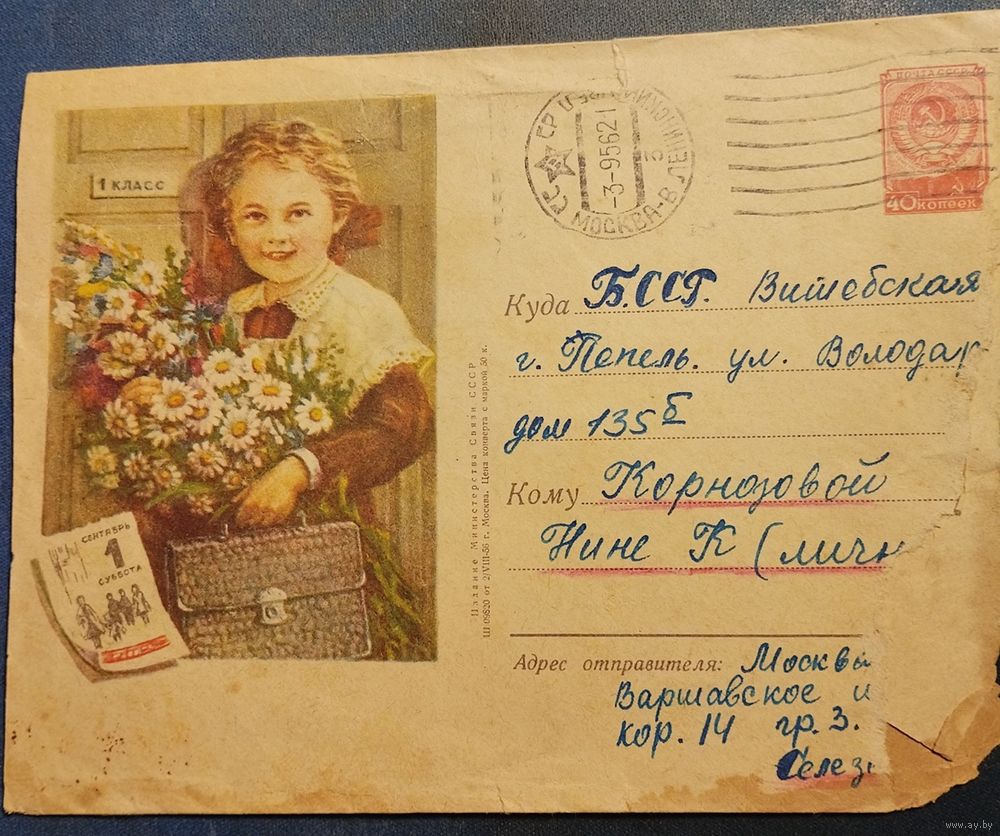 1 КЛАСС
СЕНТЯБРЬ
1
СУББОТА
Издание Министерства Связи СССР
Ш 09820 от 2/VIII-56 г. Москва. Цена конверта с маркой 50 к.
МОСКВА-В
-3-9 56 21
ПОЧТА СССР
40 копеек
Куда Б.ССР. Витебская
г. Лепель. ул. Володар
дом 135 Б
Кому Корнозовой
Нине К (личн
Адрес отправителя: Москва
Варшавское
кор. 14 гр. 3.
Селез
www.ay.by